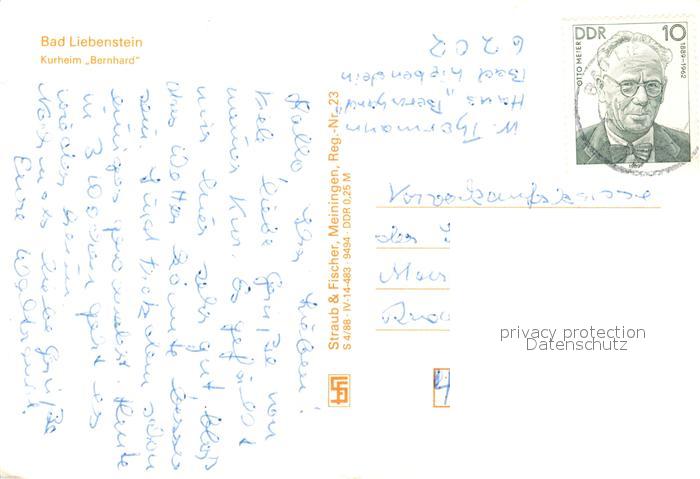 Bad Liebenstein
Kurheim „Bernhard"
DDR 10
OTTO MEIER
1889-1962
W. Thormann
Haus "Bernhard"
Bad Liebenstein
6202
Straub & Fischer, Meiningen, Reg.-Nr. 23
S 4/88 · IV-14-483 · 9494 · DDR 0,25 M
Hallo, Ihr Lieben!
Viele liebe Grüße von
meiner Kur. Es gefällt
mir hier sehr gut, bloß
das Wetter könnte besser
sein. Sind trotzdem schon
einiges gewandert. Heute
in 3 Wochen geht es
wieder heim.
Nochmals liebe Grüße
Eure Waltraud
Vorverkaufskasse
der
4
privacy protection
Datenschutz